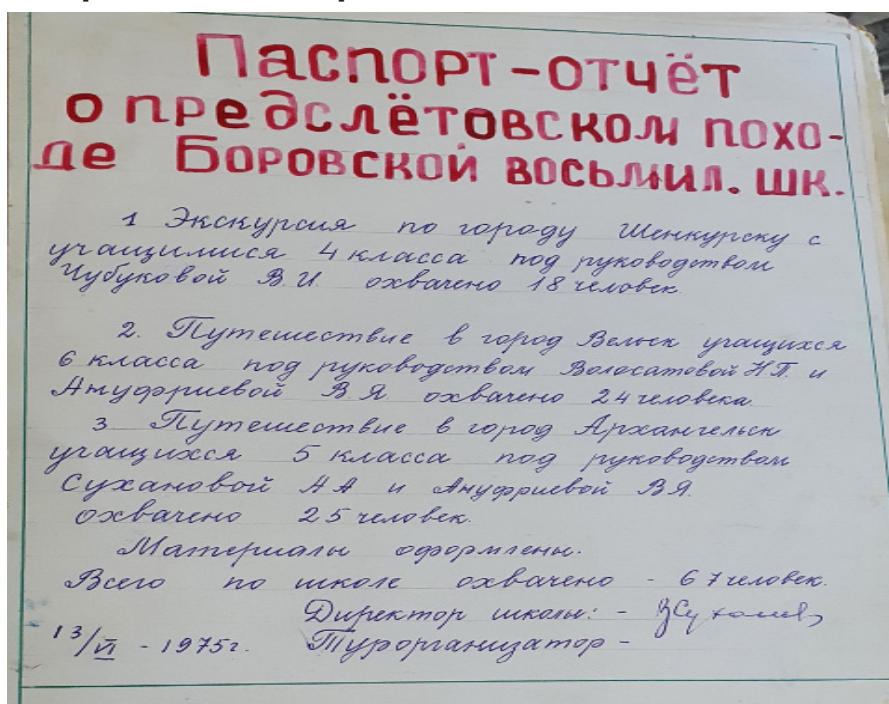 Паспорт-отчёт
о предслётовском похо-
де Боровской восьмил. шк.
1 Экскурсия по городу Шенкурску с
учащимися 4 класса под руководством
Чубуковой В.И. охвачено 18 человек.
2. Путешествие в город Вельск учащихся
6 класса под руководством Волосатовой Н.П. и
Ануфриевой В Я охвачено 24 человека.
3 Путешествие в город Архангельск
учащихся 5 класса под руководством
Сухановой А А и Ануфриевой В Я.
охвачено 25 человек.
Материалы оформлены.
Всего по школе охвачено - 67 человек.
Директор школы: -
13/VI - 1975г. Турорганизатор -